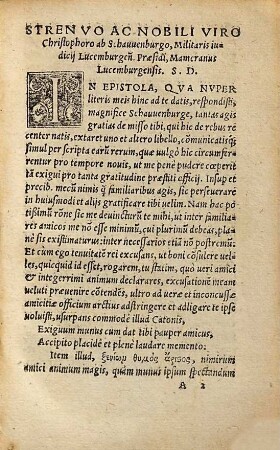 STRENVO AC NOBILI VIRO
Christophoro ab Schauuenburgo, Militaris iu-
dicij Lucemburgeñ. Præsidi, Mameranus
Lucemburgensis. S. D.
IN EPISTOLA, QVA NVPER
literis meis hinc ad te datis, respondisti,
magnifice Schauuenburge, tantas agis
gratias de misso tibi, qui hic de rebus re
center natis, extaret uno et altero libello, cōmunicatisq́;
simul per scripta earū rerum, quæ uulgò hic circumferen-
rentur pro tempore nouis, ut me penè pudere cœperit
tā exigui pro tanta gratitudine præstiti officij. Insup et
precib. mecū nimis q̃ familiaribus agis, sic perseuerare
in huiusmodi et alijs gratificare tibi uelim. Nam hac po
tißimū rōne sic me deuincturū te mihi, ut inter familia-
res amicos me nō esse minimū, cui plurimū debeas, pla-
nè sis existimaturus: inter necessarios etiā nō postremū.
Et cùm ego tenuitatē rei excusans, ut boni cōsulere uel-
les, quicquid id esset, rogarem, tu statim, quò ueri amici
& integerrimi animum declarares, excusationē meam
ueluti præuenire cōtēdēs, ultro ad ueræ et inconcussæ
amicitiæ officium arctius adstringere et adligare te ipse
uoluisti, usurpans commodè illud Catonis,
Exiguum munus cum dat tibi pauper amicus,
Accipito placidè et plenè laudare memento:
Item illud, ξενίων θυμὸς ἄριστος, nimirum
amici animum magis, quàm munus ipsum spectandum
A 2